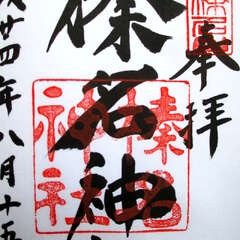 奉拝
榛名神
廿四年八月十五
榛名
神社